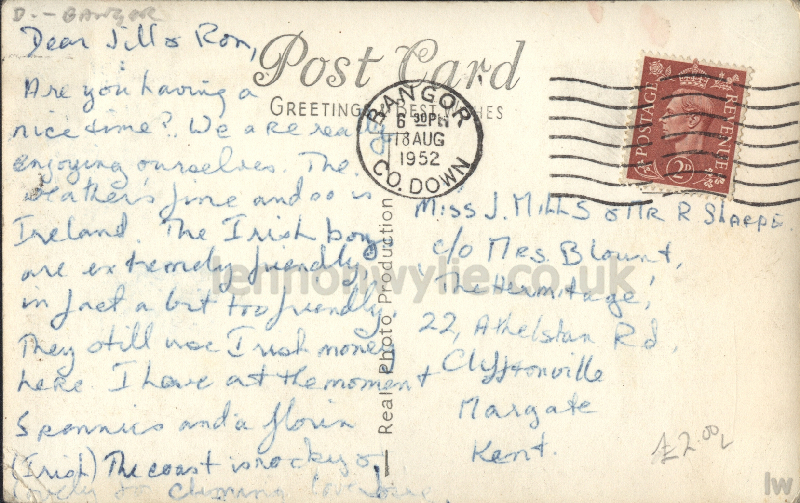 D. - BANGOR
Dear Jill & Ron,
Are you having a
nice time? We are really
enjoying ourselves. The
weather's fine and so is
Ireland. The Irish boys
are extremely friendly,
in fact a bit too friendly.
They still use Irish money
here. I have at the moment
5 pennies and a florin
(Irish) The coast is rocky &
lovely for
Post Card
GREETINGS BEST WISHES
BANGOR
6 30PM
18 AUG
1952
CO. DOWN
POSTAGE
REVENUE
2D
Real Photo Production
Miss J. Mills & Mr R Sharpe
c/o Mrs. Blount,
'The Hermitage',
22, Athelstan Rd,
Cliftonville
Margate
Kent.
£2.00
lennonwylie.co.uk
lw